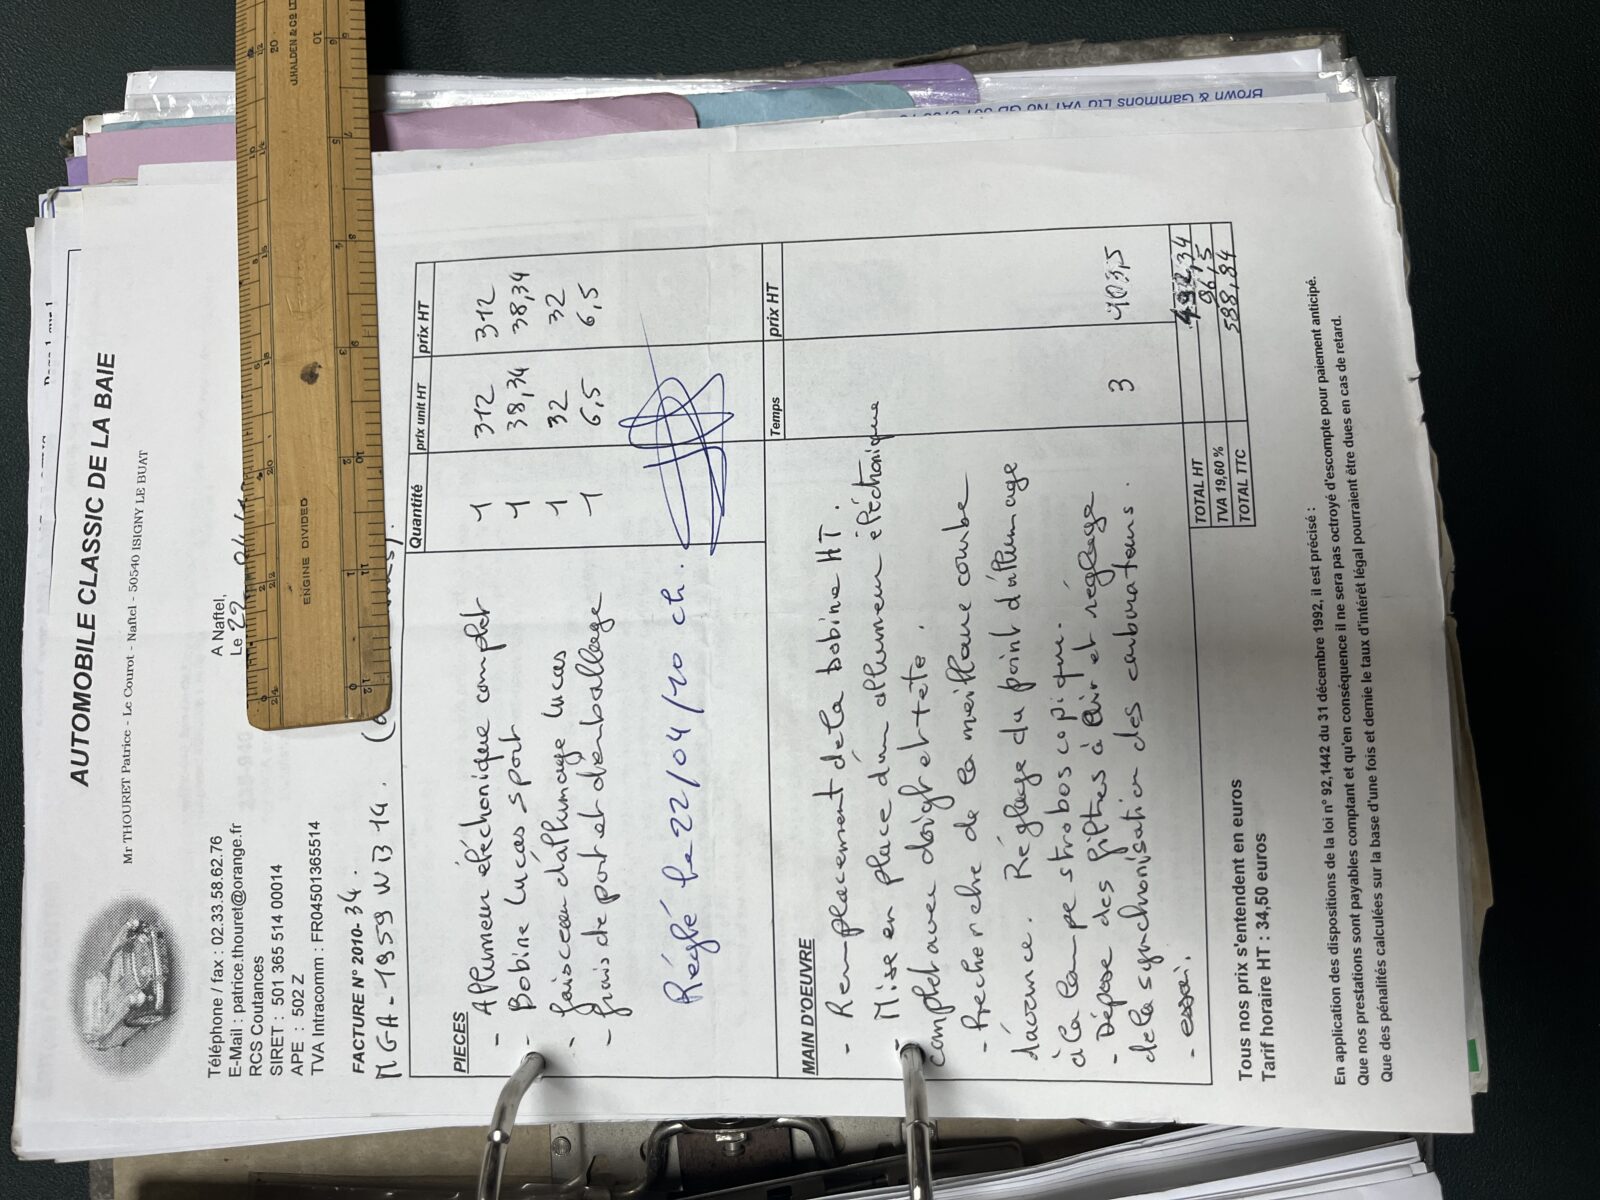 AUTOMOBILE CLASSIC DE LA BAIE
Mr THOURET Patrice - Le Courot - Naftel - 50540 ISIGNY LE BUAT
Téléphone / fax : 02.33.58.62.76
E-Mail : patrice.thouret@orange.fr
RCS Coutances
SIRET : 501 365 514 00014
APE : 502 Z
TVA Intracomm : FR04501365514
A Naftel,
Le 22
FACTURE N° 2010-34.
MGA - 1959 WB 14.
PIECES
Quantité
prix unit HT
prix HT
- Allumeur éléctronique complet 1 312 312
- Bobine Lucas sport 1 38,34 38,34
- faisceau d'allumage lucas 1 32 32
- frais de port et d'emballage 1 6,5 6,5
Réglé le 22/04/10 ch.
MAIN D'OEUVRE
Temps
prix HT
- Remplacement de la bobine HT.
- Mise en place d'un allumeur éléctronique
complet avec doigt et tete.
- Recherche de la meilleure courbe
d'avance. Réglage du point d'allumage
à la lampe stroboscopique.
- Dépose des filtres à air et réglage
de la synchronisation des carburateurs. 3 103,5
- essai.
TOTAL HT 492,34
TVA 19,60% 96,5
TOTAL TTC 588,84
Tous nos prix s'entendent en euros
Tarif horaire HT : 34,50 euros
En application des dispositions de la loi n° 92,1442 du 31 décembre 1992, il est précisé :
Que nos prestations sont payables comptant et qu'en conséquence il ne sera pas octroyé d'escompte pour paiement anticipé.
Que des pénalités calculées sur la base d'une fois et demie le taux d'intérêt légal pourraient être dues en cas de retard.
Brown & Gammons Ltd VAT No GB
J.HALDEN & CO LT
ENGINE DIVIDED